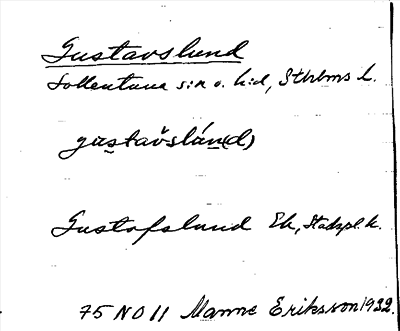 Gustavslund
Sollentuna s:n o. h:d, Sthlms l.
gus̲tavslán̲(d)
Gustafslund Ek, Stadspl. k.
75 NO 11 Manne Eriksson 1932.